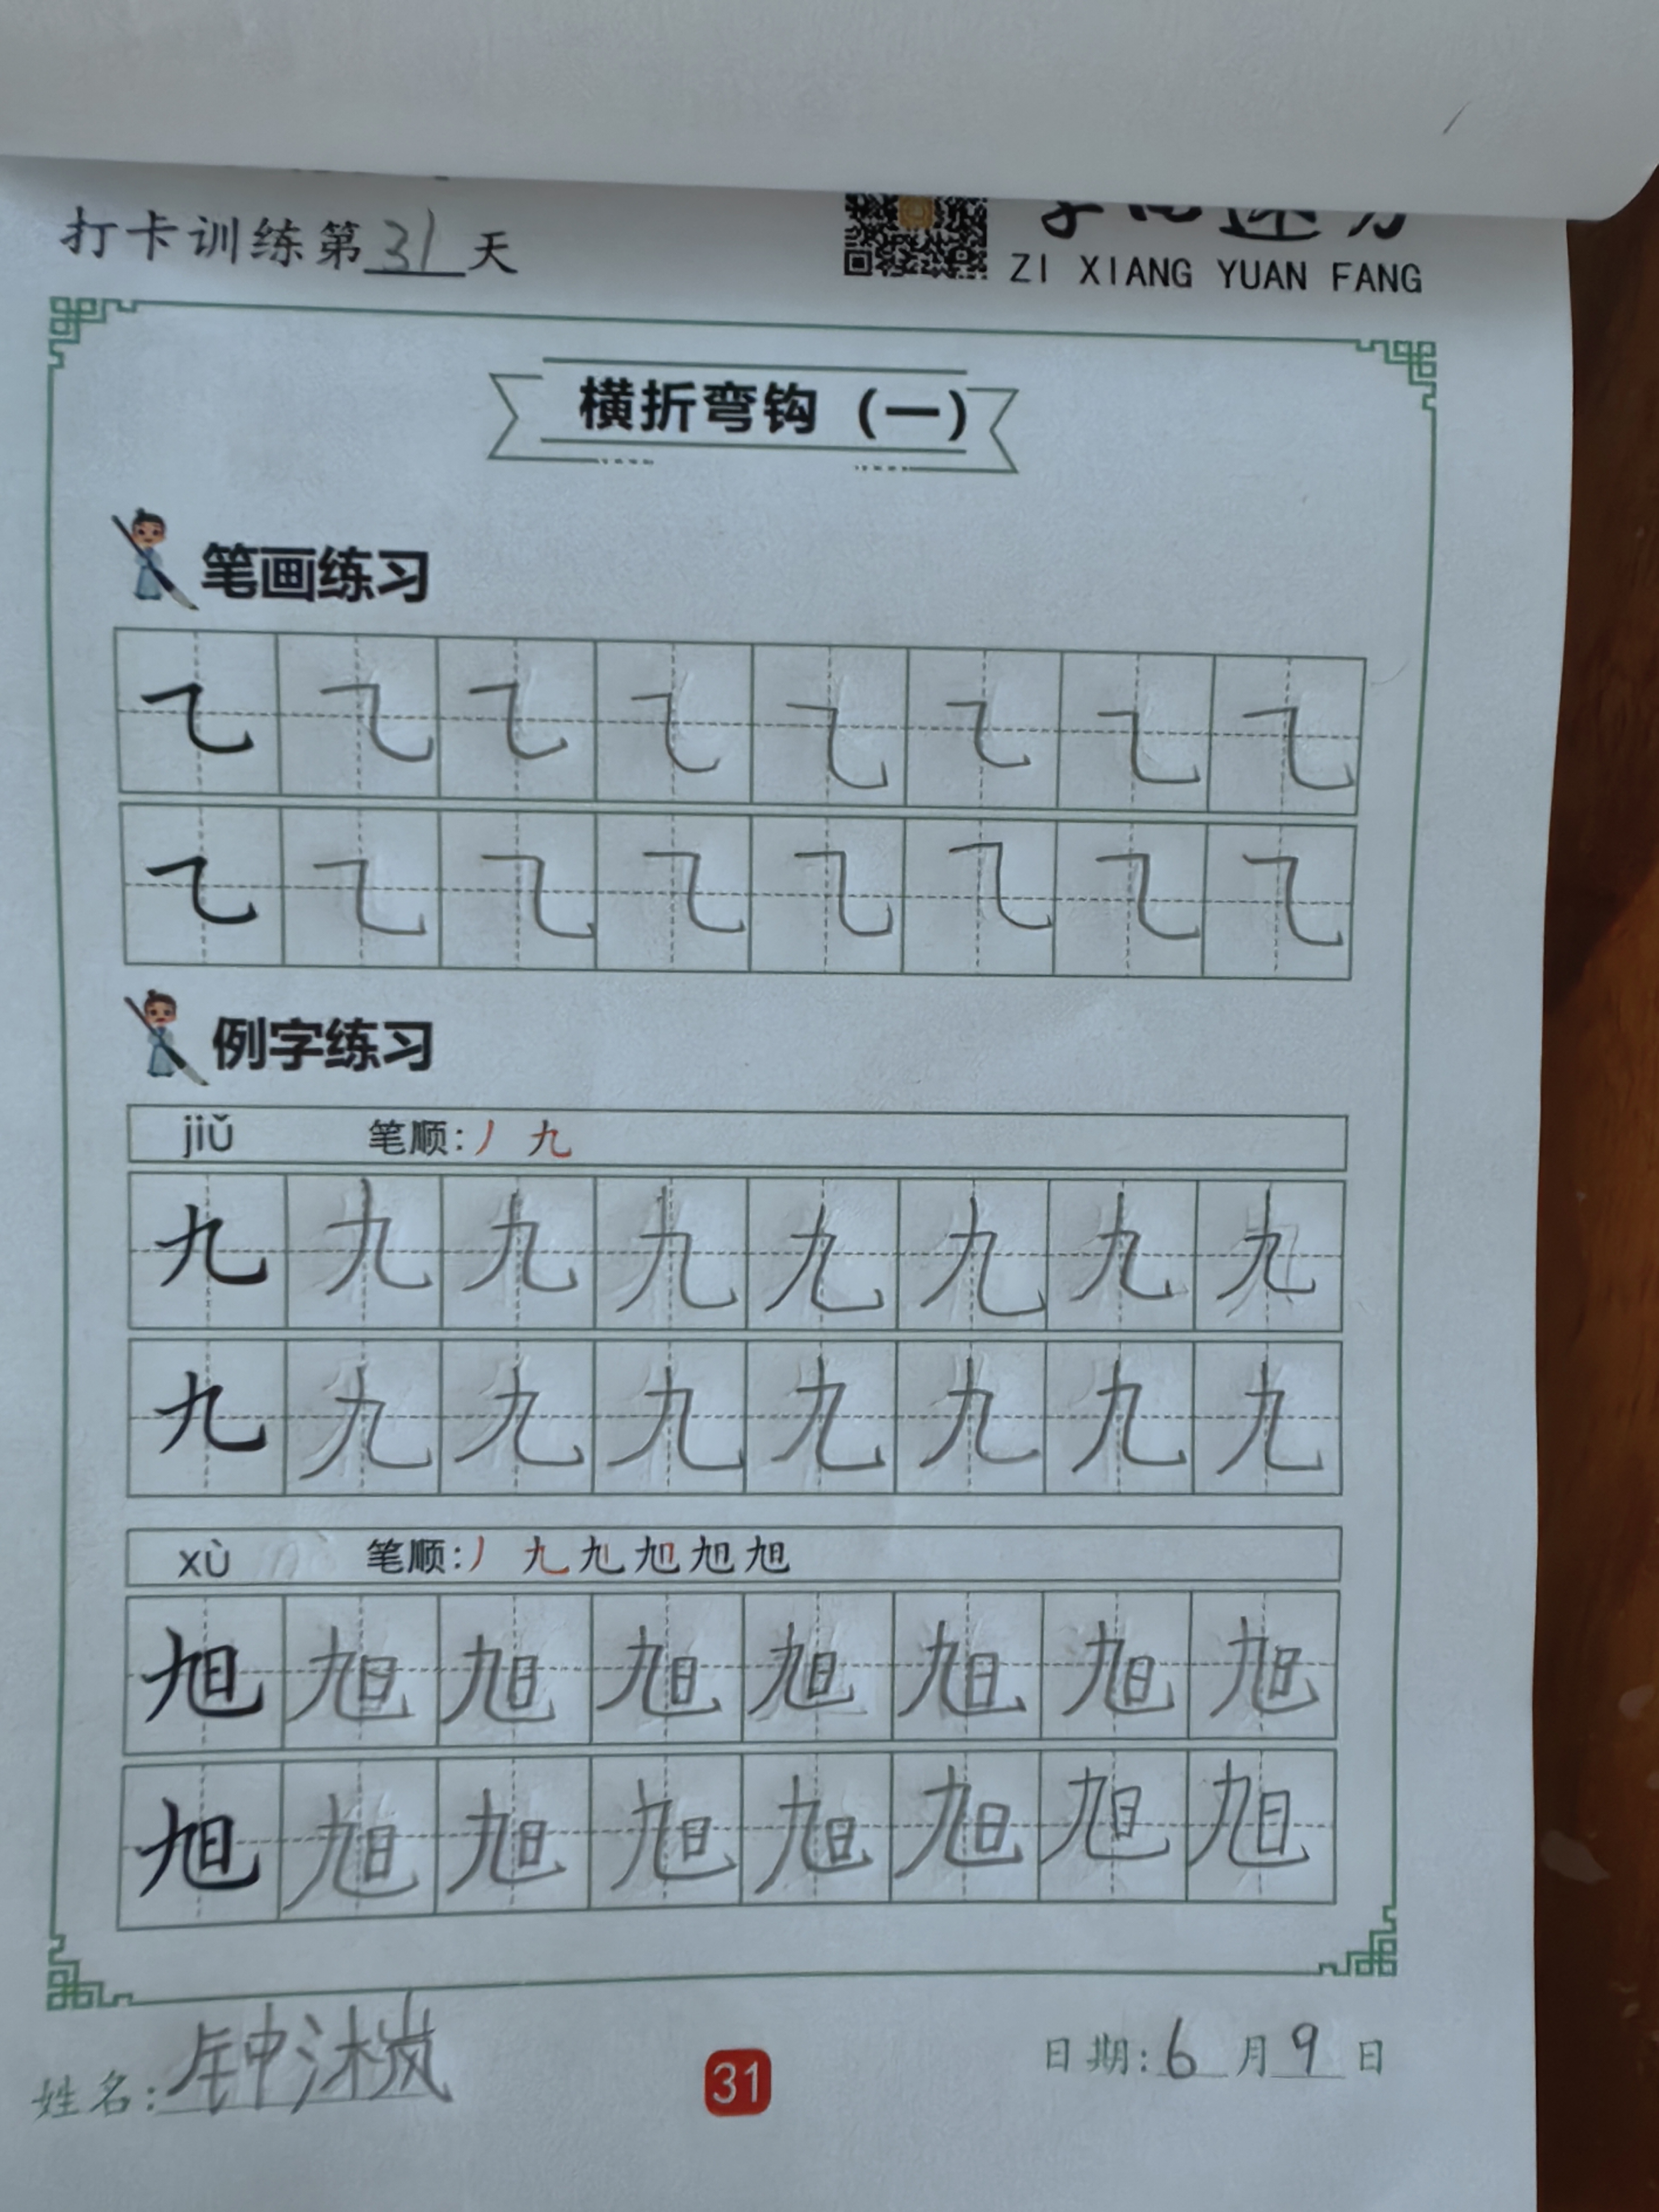 打卡训练第31天
ZI XIANG YUAN FANG
横折弯钩（一）
笔画练习
㇈ ㇈ ㇈ ㇈ ㇈ ㇈ ㇈ ㇈
㇈ ㇈ ㇈ ㇈ ㇈ ㇈ ㇈ ㇈
例字练习
jiǔ 笔顺:丿 九
九 九 九 九 九 九 九 九
九 九 九 九 九 九 九 九
xù 笔顺:丿 九 旭 旭
旭 旭 旭 旭 旭 旭 旭 旭
旭 旭 旭 旭 旭 旭 旭 旭
姓名:钟沐岚
31
日期:6月9日